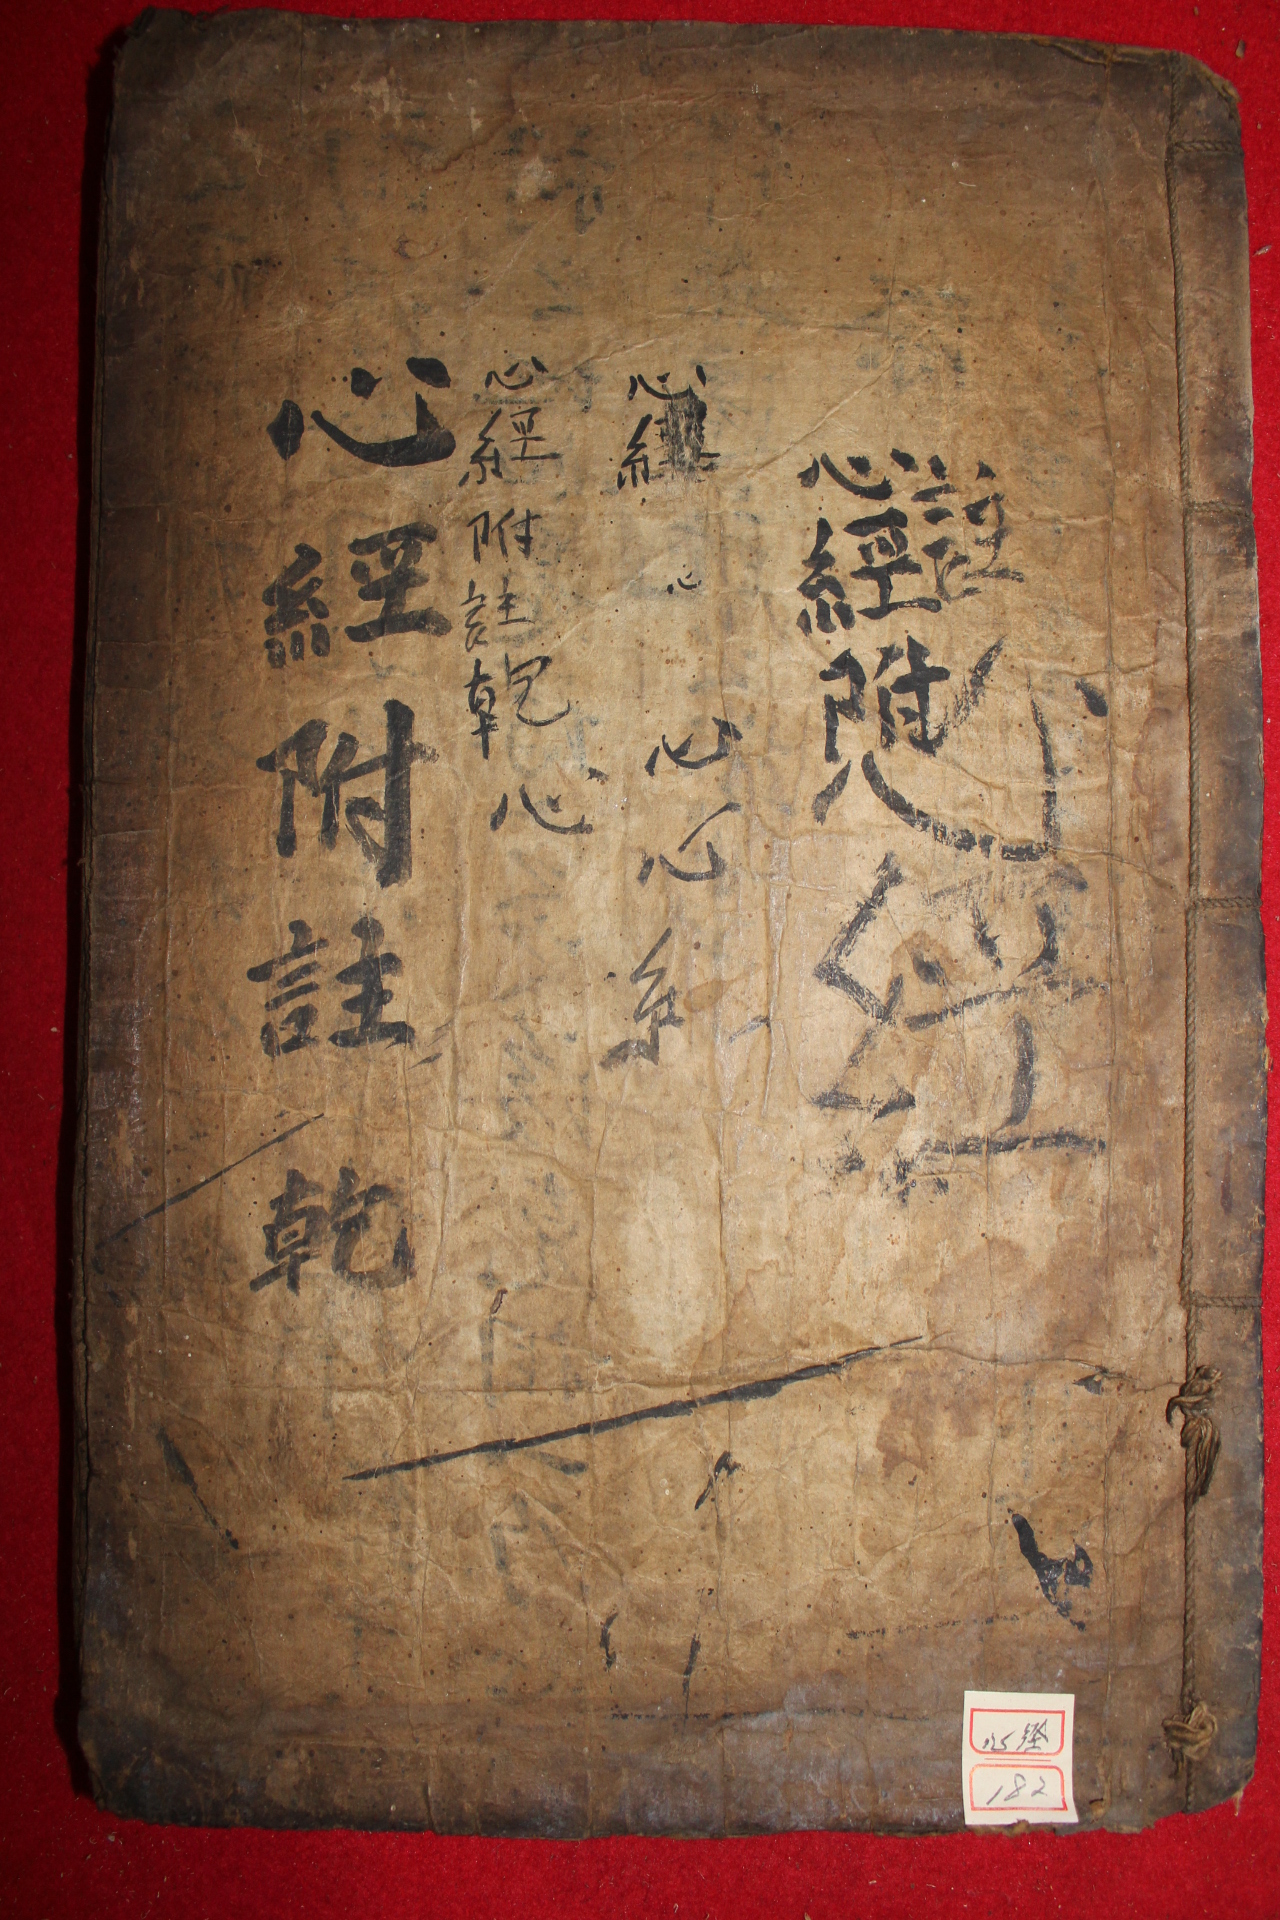 註
心經附
心經
心經
心
心心糸
心經附註乾
心
心經附註乾
心經
182